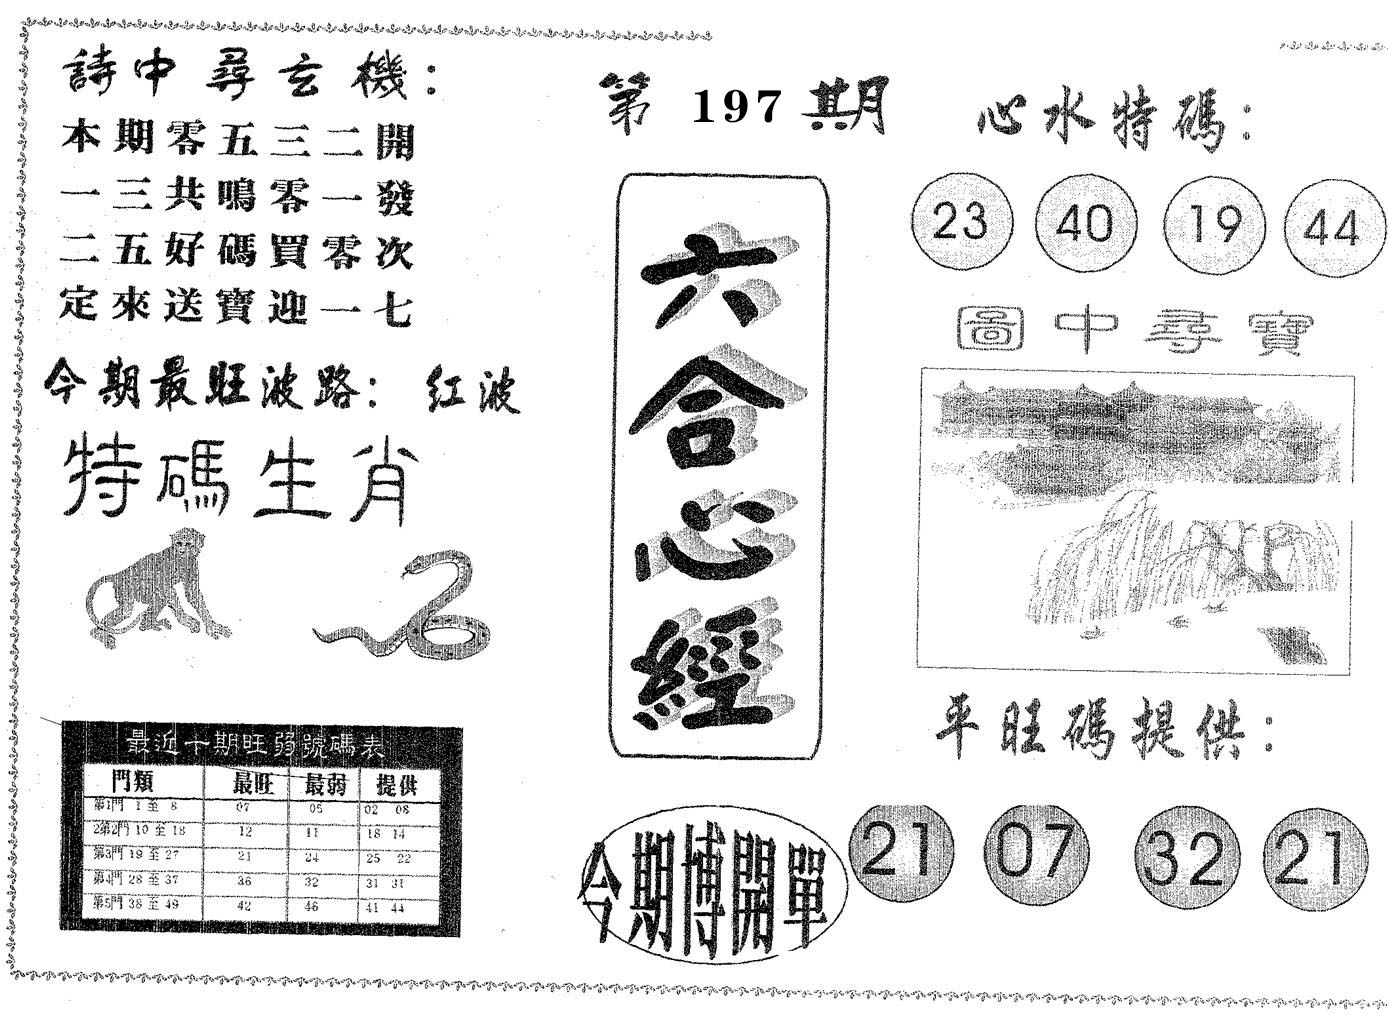 詩中尋玄機：
本期零五三二開
一三共鳴零一發
二五好碼買零次
定來送寶迎一七
今期最旺波路：紅波
特碼生肖
最近十期旺弱號碼表
門類 最旺 最弱 提供
第1門 1 至 8 07 05 02 08
2第2門 10 至 18 12 11 18 14
第3門 19 至 27 21 24 25 22
第4門 28 至 37 36 32 31 31
第5門 38 至 49 42 46 41 44
第 197 期
六合心經
今期博開單
心水特碼：
23 40 19 44
圖中尋寶
平旺碼提供：
21 07 32 21